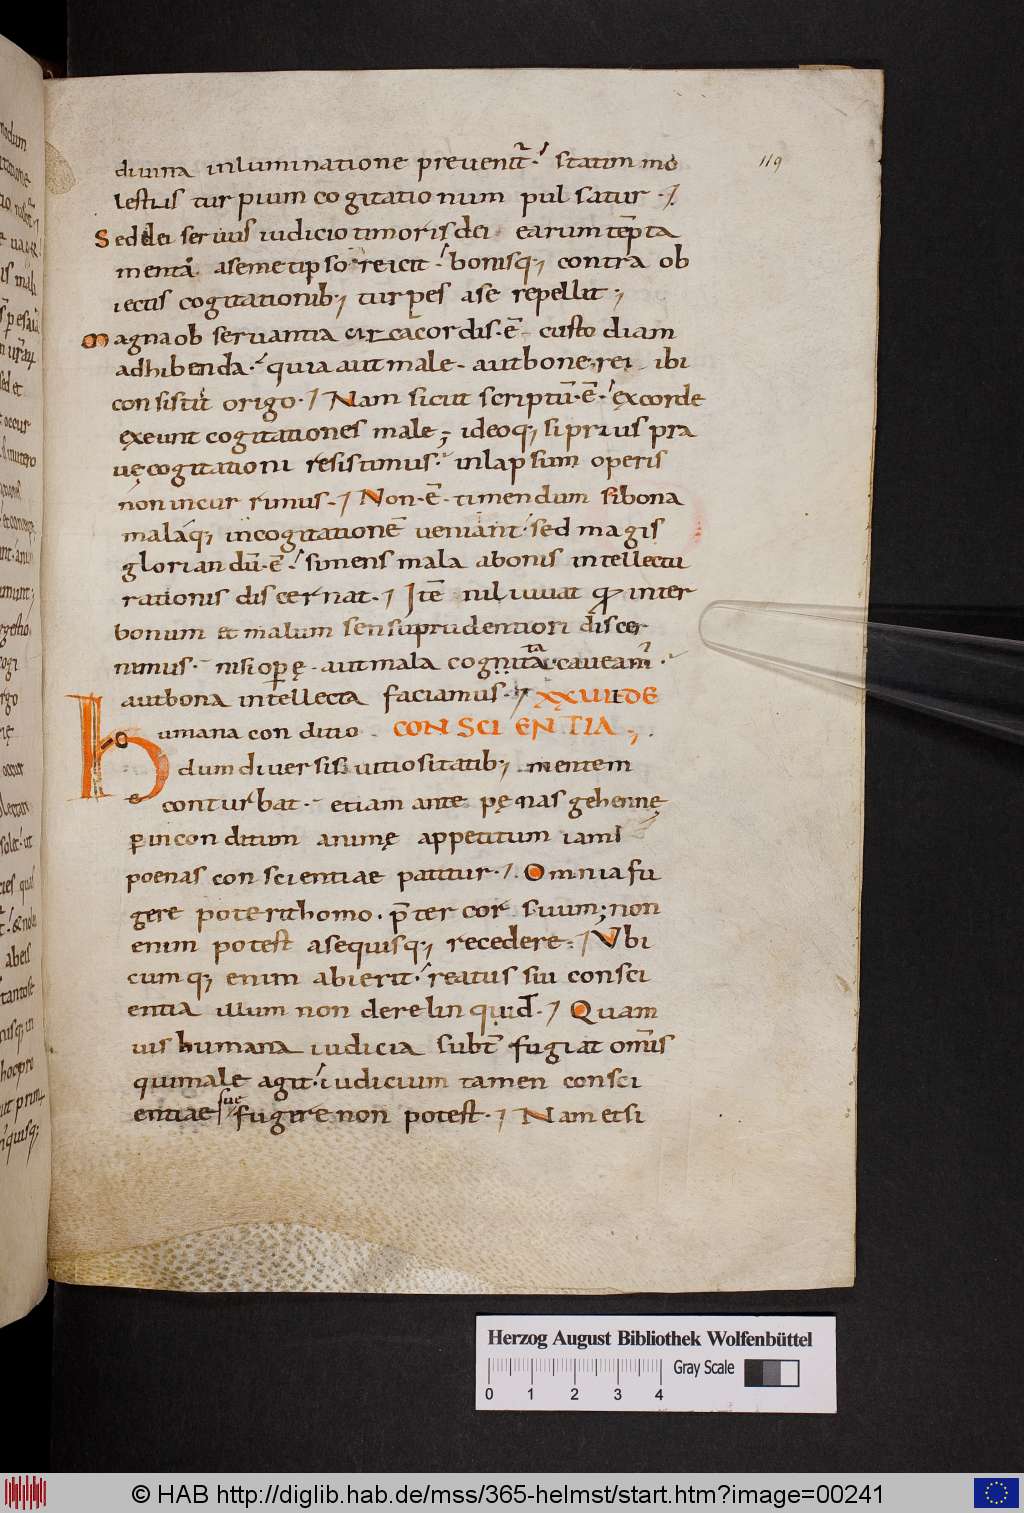 119
diuina inluminatione preuenit̄· statim mo
lestus turpium cogitationum pulsatur·
Sed dei seruus iudicio timoris dei earum tēpta
menta asemetipso reicit· bonisq; contra ob
iectis cogitationib; turpes ase repellit;
Magna obseruantia circa cordis·ē· custodiam
adhibenda· quia aut male· aut bone rei ibi
consistit origo· Nam sicut scriptū·ē· ęxcorde
ęxeunt cogitationes male; ideoq; si prius pra
uę cogitationi resistimus· inlapsum operis
non incurrimus· Non·ē· timendum si bona
malaq; incogitationē ueniant· sed magis
gloriandū·ē· si mens mala abonis intellectu
rationis discernat· Itē nil iuuat q inter
bonum et malum sensu prudentiori discer
nimus· nisi opere· aut mala cognita caueam·
aut bona intellecta faciamus· XXVII DE
Humana conditio CONSCIENTIA
dum diuersis uitiositatib; mentem
conturbat· etiam ante pęnas gehennę
p inconditum animę appetitum iam
poenas conscientiae patitur· Omnia fu
gere poterit homo· p̄ter cor suum; non
enim potest asequisq; recedere· Vbi
cumq; enim abierit· reatus sui consci
entia illum non derelinquid· Quam
uis humana iudicia subt̄ fugiat omīs
qui male agit· iudicium tamen consci
entiae suę fugire non potest· Nam etsi
Herzog August Bibliothek Wolfenbüttel
0 1 2 3 4 Gray Scale
© HAB http://diglib.hab.de/mss/365-helmst/start.htm?image=00241